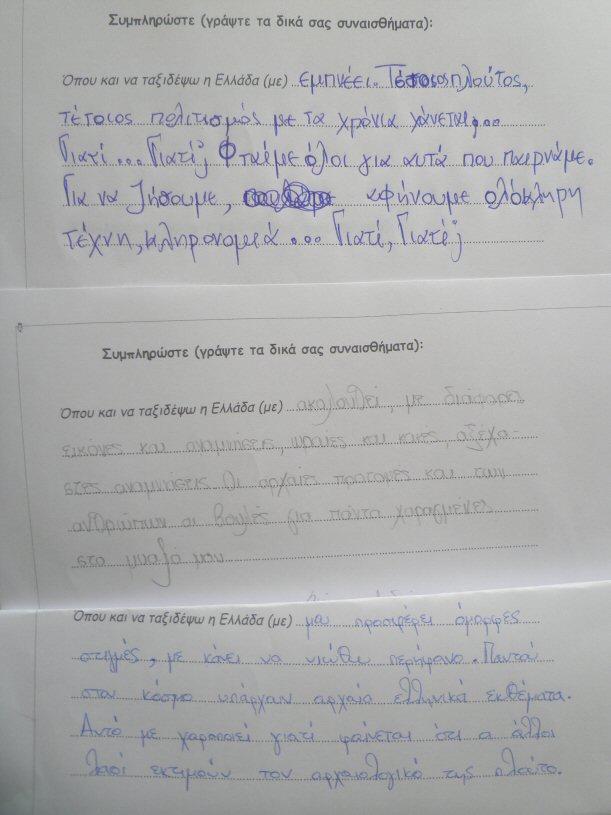 Συμπληρώστε (γράψτε τα δικά σας συναισθήματα):
Όπου και να ταξιδέψω η Ελλάδα (με) εμπνέει. Τέτοιος πλούτος,
τέτοιος πολιτισμός με τα χρόνια χάνεται;...
Γιατί... Γιατί; Φταίμε όλοι για αυτά που παιρνάμε.
Για να ζήσουμε, αφήνουμε ολόκληρη
τέχνη, κληρονομιά... Γιατί, Γιατί;
Συμπληρώστε (γράψτε τα δικά σας συναισθήματα):
Όπου και να ταξιδέψω η Ελλάδα (με) ακολουθεί, με διάφορες
εικόνες και αναμνήσεις, ωραίες και κακές, αξέχα-
στες αναμνήσεις Οι αρχαίες και των
ανθρώπων οι για πάντα χαραγμένες
στο μυαλό μου
Όπου και να ταξιδέψω η Ελλάδα (με) μου προσφέρει όμορφες
στιγμές, με κάνει να νιώθω περήφανο. Παντού
στον κόσμο υπάρχουν αρχαία ελληνικά εκθέματα.
Αυτό με χαροποιεί γιατί φαίνεται ότι α άλλοι
λαοί εκτιμούν τον αρχαιολογικό της πλούτο.